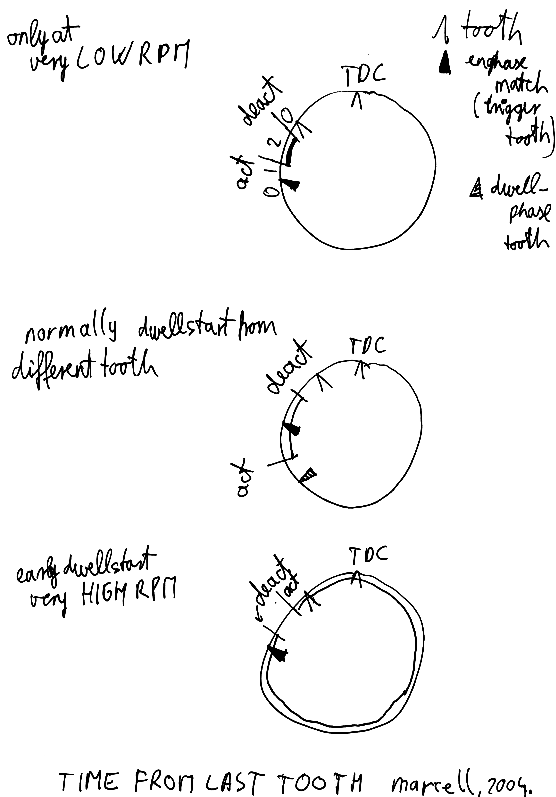 only at
very LOW RPM
tooth
enphase
match
(trigger
tooth)
dwell-
phase
tooth
TDC
deact
0
2
1
act
0
normally dwellstart from
different tooth
TDC
deact
act
early dwellstart
very HIGH RPM
TDC
deact
act
TIME FROM LAST TOOTH marcell, 2004.